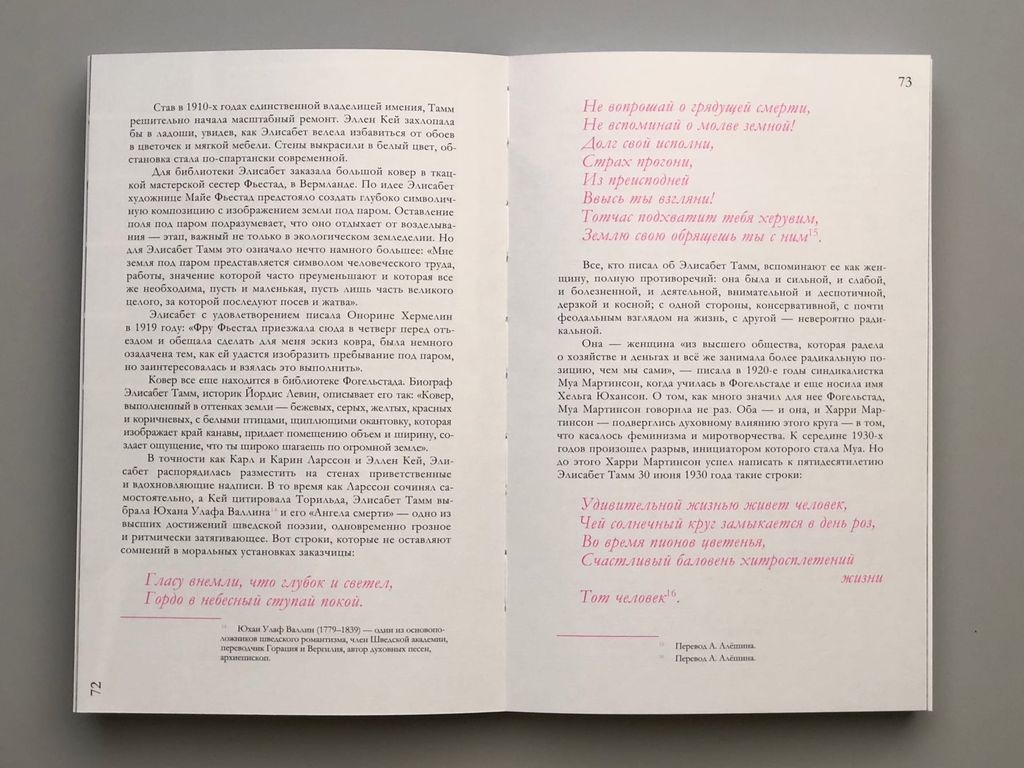 Став в 1910-х годах единственной владелицей имения, Тамм
решительно начала масштабный ремонт. Эллен Кей захлопала
бы в ладоши, увидев, как Элисабет велела избавиться от обоев
в цветочек и мягкой мебели. Стены выкрасили в белый цвет, об-
становка стала по-спартански современной.
Для библиотеки Элисабет заказала большой ковер в ткац-
кой мастерской сестер Фьестад, в Вермланде. По идее Элисабет
художнице Майе Фьестад предстояло создать глубоко символич-
ную композицию с изображением земли под паром. Оставление
поля под паром подразумевает, что оно отдыхает от возделыва-
ния — этап, важный не только в экологическом земледелии. Но
для Элисабет Тамм это означало нечто намного большее: «Мне
земля под паром представляется символом человеческого труда,
работы, значение которой часто преуменьшают и которая все
же необходима, пусть и маленькая, пусть лишь часть великого
целого, за которой последуют посев и жатва».
Элисабет с удовлетворением писала Онорине Хермелин
в 1919 году: «Фру Фьестад приезжала сюда в четверг перед отъ-
ездом и обещала сделать для меня эскиз ковра, была немного
озадачена тем, как ей удастся изобразить пребывание под паром,
но заинтересовалась и взялась это выполнить».
Ковер все еще находится в библиотеке Фогельстада. Биограф
Элисабет Тамм, историк Йордис Левин, описывает его так: «Ковер,
выполненный в оттенках земли — бежевых, серых, желтых, красных
и коричневых, с белыми птицами, щиплющими окантовку, которая
изображает край канавы, придает помещению объем и ширину, со-
здает ощущение, что ты широко шагаешь по огромной земле».
В точности как Карл и Карин Ларссон и Эллен Кей, Эли-
сабет распорядилась разместить на стенах приветственные
и вдохновляющие надписи. В то время как Ларссон сочинял са-
мостоятельно, а Кей цитировала Торильда, Элисабет Тамм вы-
брала Юхана Улафа Валлина¹⁴ и его «Ангела смерти» — одно из
высших достижений шведской поэзии, одновременно грозное
и ритмически затягивающее. Вот строки, которые не оставляют
сомнений в моральных установках заказчицы:
Гласу внемли, что глубок и светел,
Гордо в небесный ступай покой.
¹⁴ Юхан Улаф Валлин (1779–1839) — один из основопо-
ложников шведского романтизма, член Шведской академии,
переводчик Горация и Вергилия, автор духовных песен,
архиепископ.
72
73
Не вопрошай о грядущей смерти,
Не вспоминай о молве земной!
Долг свой исполни,
Страх прогони,
Из преисподней
Ввысь ты взгляни!
Тотчас подхватит тебя херувим,
Землю свою обрящешь ты с ним¹⁵.
Все, кто писал об Элисабет Тамм, вспоминают ее как жен-
щину, полную противоречий: она была и сильной, и слабой,
и болезненной, и деятельной, внимательной и деспотичной,
дерзкой и косной; с одной стороны, консервативной, с почти
феодальным взглядом на жизнь, с другой — невероятно ради-
кальной.
Она — женщина «из высшего общества, которая радела
о хозяйстве и деньгах и всё же занимала более радикальную по-
зицию, чем мы сами», — писала в 1920-е годы синдикалистка
Муа Мартинсон, когда училась в Фогельстаде и еще носила имя
Хельга Юхансон. О том, как много значил для нее Фогельстад,
Муа Мартинсон говорила не раз. Оба — и она, и Харри Мар-
тинсон — подверглись духовному влиянию этого круга — в том,
что касалось феминизма и миротворчества. К середине 1930-х
годов произошел разрыв, инициатором которого стала Муа. Но
до этого Харри Мартинсон успел написать к пятидесятилетию
Элисабет Тамм 30 июня 1930 года такие строки:
Удивительной жизнью живет человек,
Чей солнечный круг замыкается в день роз,
Во время пионов цветенья,
Счастливый баловень хитросплетений
жизни
Тот человек¹⁶.
¹⁵ Перевод А. Алёшина.
¹⁶ Перевод А. Алёшина.